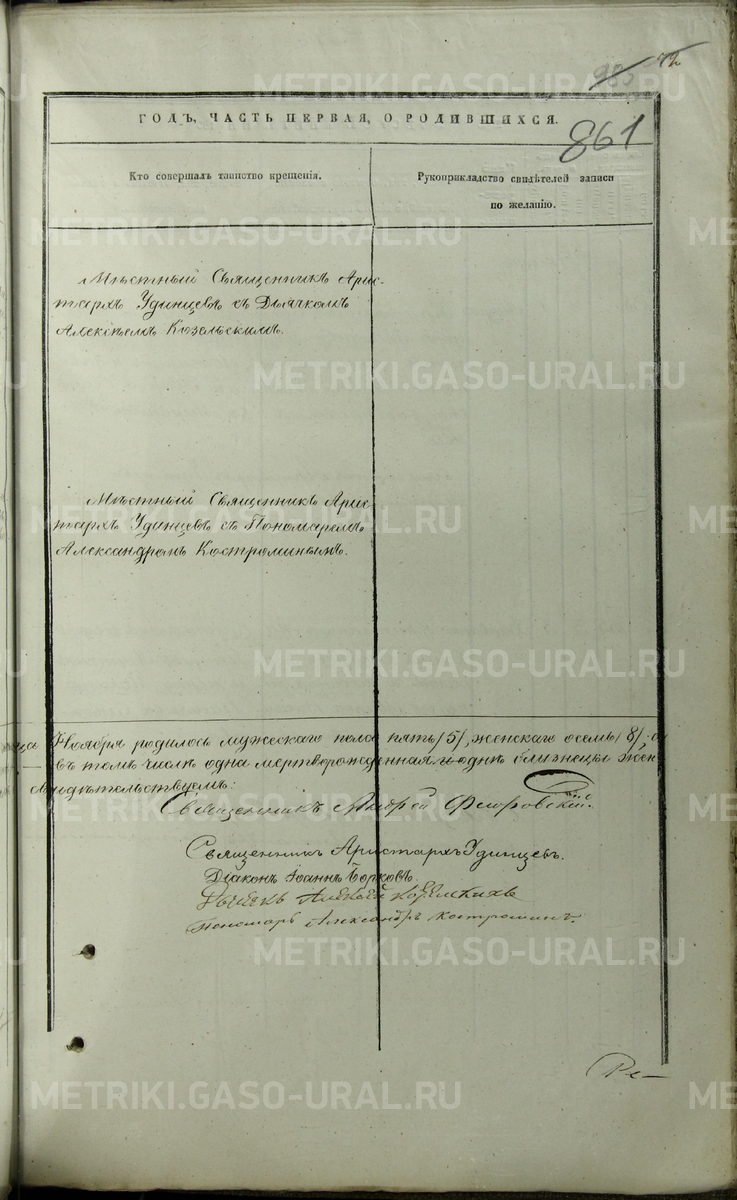 985 72
ГОДЪ, ЧАСТЬ ПЕРВАЯ, О РОДИВШИХСЯ.
861
Кто совершалъ таинство крещенія.
Рукоприкладство свидѣтелей записи
по желанію.
Мѣстный Священникъ Арис-
тархъ Удинцевъ съ Дьячкомъ
Алексѣемъ Козельскимъ.
Мѣстный Священникъ Арис-
тархъ Удинцевъ съ Пономаремъ
Александромъ Костроминымъ.
Ноября родилось мужескаго пола пять /5/, женскаго осемь /8/,
въ томъ числѣ одна мертворожденная и однѣ близнецы жен
свидѣтельствуемъ:
Священникъ Андрей
Священникъ Аристархъ Удинцевъ.
Діаконъ Іоаннъ Борковъ.
Дьячекъ Алексѣй
Пономарь Александръ Костроминъ.
METRIKI.GASO-URAL.RU